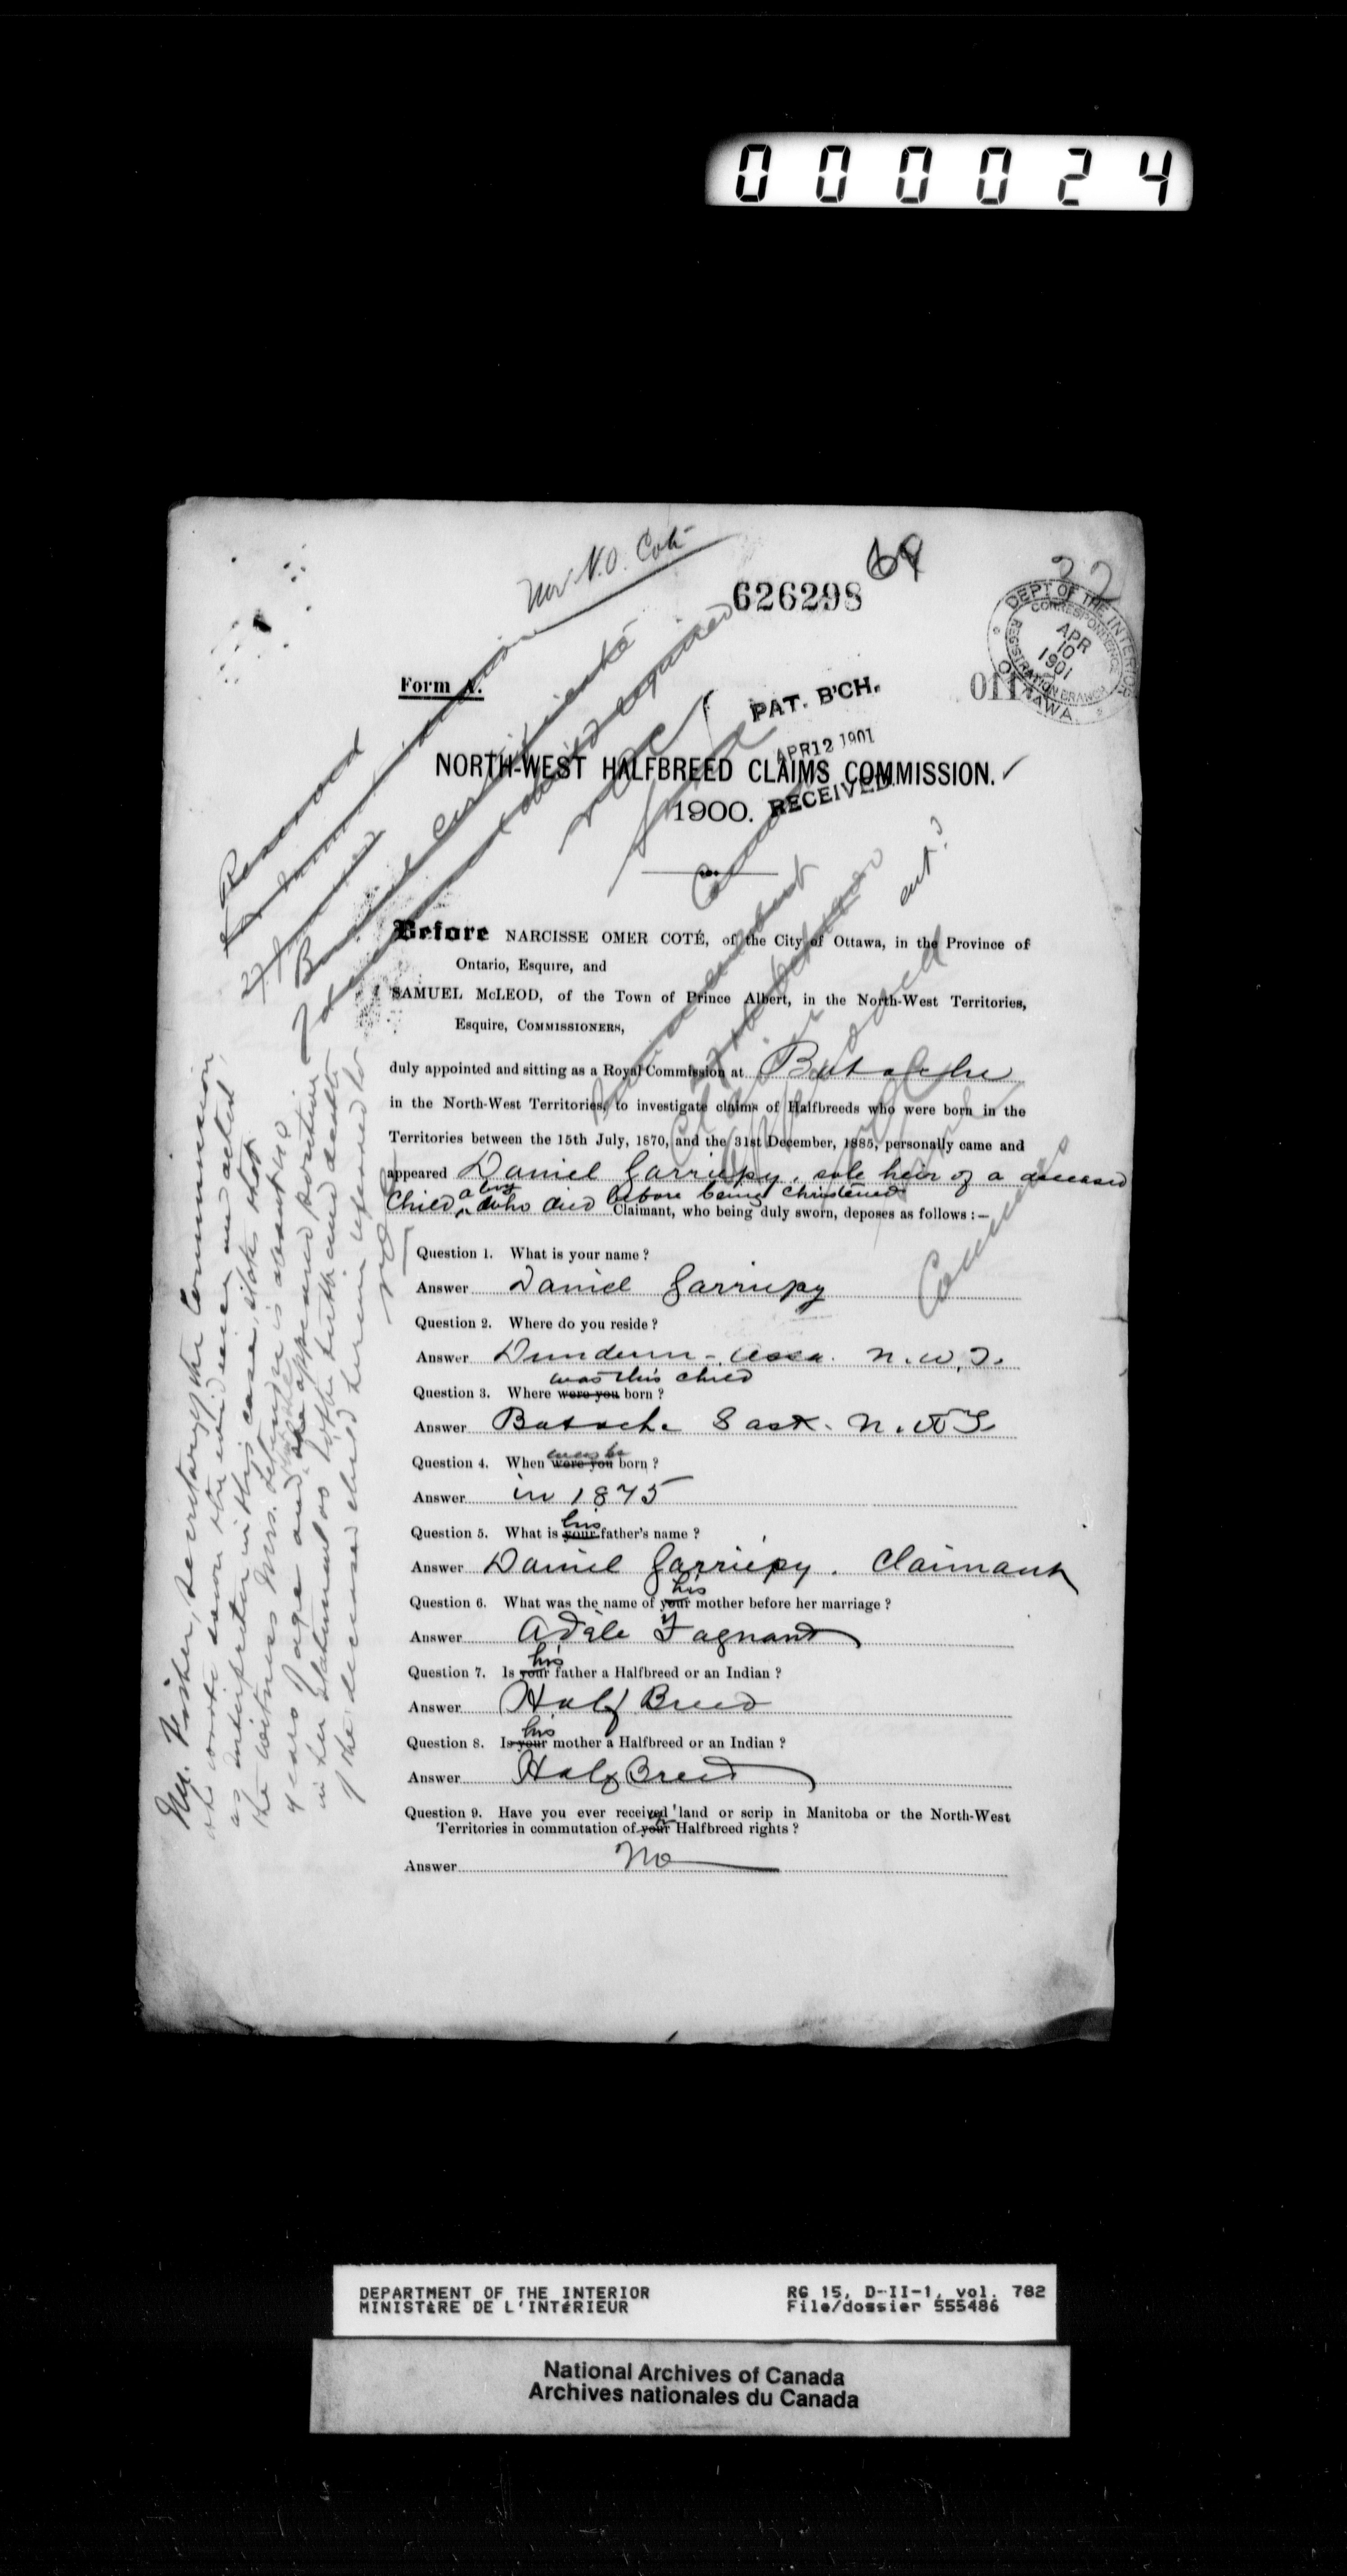 000024
Mr N.O. Coté
69
22
626298
DEPT OF THE INTERIOR
CORRESPONDENCE
APR
10
1901
REGISTRATION BRANCH
OTTAWA
Form
011
PAT. B'CH.
APR 12 1901
RECEIVED
NORTH-WEST HALFBREED CLAIMS COMMISSION. ✓
1900.
Reserved
Before NARCISSE OMER COTÉ, of the City of Ottawa, in the Province of
Ontario, Esquire, and
SAMUEL McLEOD, of the Town of Prince Albert, in the North-West Territories,
Esquire, COMMISSIONERS,
duly appointed and sitting as a Royal Commission at Batoche
in the North-West Territories, to investigate claims of Halfbreeds who were born in the
Territories between the 15th July, 1870, and the 31st December, 1885, personally came and
appeared Daniel Garriepy, sole heir of a deceased
Child, a boy who died before being christened
Claimant, who being duly sworn, deposes as follows:—
Question 1. What is your name?
Answer Daniel Garriepy
Question 2. Where do you reside?
Answer Dundurn - Assa. N.W.T.
was this child
Question 3. Where were you born?
Answer Batoche Sask. N.W.T.
was he
Question 4. When were you born?
Answer in 1875
his
Question 5. What is your father's name?
Answer Daniel Garriepy. Claimant
his
Question 6. What was the name of your mother before her marriage?
Answer Adèle Fagnant
his
Question 7. Is your father a Halfbreed or an Indian?
Answer Half Breed
his
Question 8. Is your mother a Halfbreed or an Indian?
Answer Half Breed
Question 9. Have you ever received land or scrip in Manitoba or the North-West
Territories in commutation of your Halfbreed rights?
Answer No
Mr. Fisher, Secretary of the Commission,
who wrote down the evidence and acted
as interpreter in this case, states that
the witness Mrs. is about 40
years of age and she appeared positive
in her statement as to the birth and death
of the deceased child herein referred to
DEPARTMENT OF THE INTERIOR
MINISTèRE DE L'INTéRIEUR
RG 15, D-II-1, vol. 782
File/dossier 555486
National Archives of Canada
Archives nationales du Canada